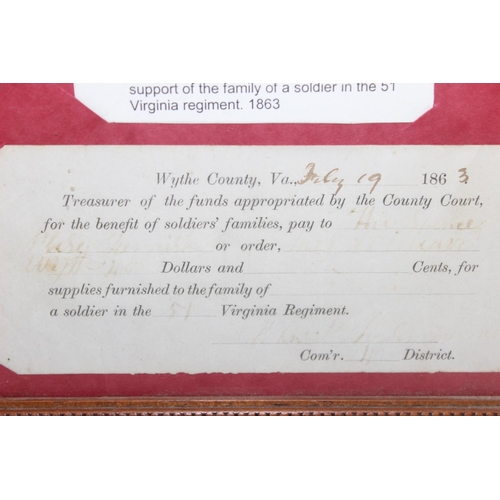 support of the family of a soldier in the 51
Virginia regiment. 1863
Wythe County, Va., Feby 19 1863
Treasurer of the funds appropriated by the County Court,
for the benefit of soldiers' families, pay to
or order,
Dollars and Cents, for
supplies furnished to the family of
a soldier in the 51 Virginia Regiment.
Com'r. District.